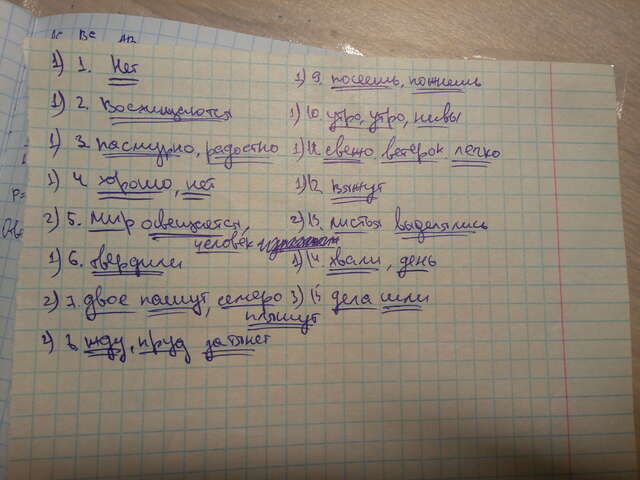 1) 1. Нет
1) 2. Восхищаются
1) 3. пасмурно, радостно
1) 4. хорошо, нет
2) 5. Мир освещается,
человек
1) 6. твердили
2) 7. двое пашут, семеро
пляшут
2) 8 жду, пруд затянет
1) 9. посеешь, пожнешь
1) 10 утро, утро, нивы
1) 11 свежо. ветерок легко
1) 12 выжгут
2) 13. листья выделялись
1) 14 хвали, день
3) 15 дела шли